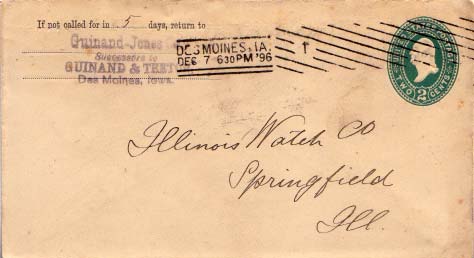 If not called for in 5 days, return to
Guinand-Jones
Successors to
GUINAND & 
Des Moines, Iowa.
DES MOINES, IA.
DEC 7 630PM '96
1
TWO 2 CENTS
Illinois Watch Co
Springfield
Ill.